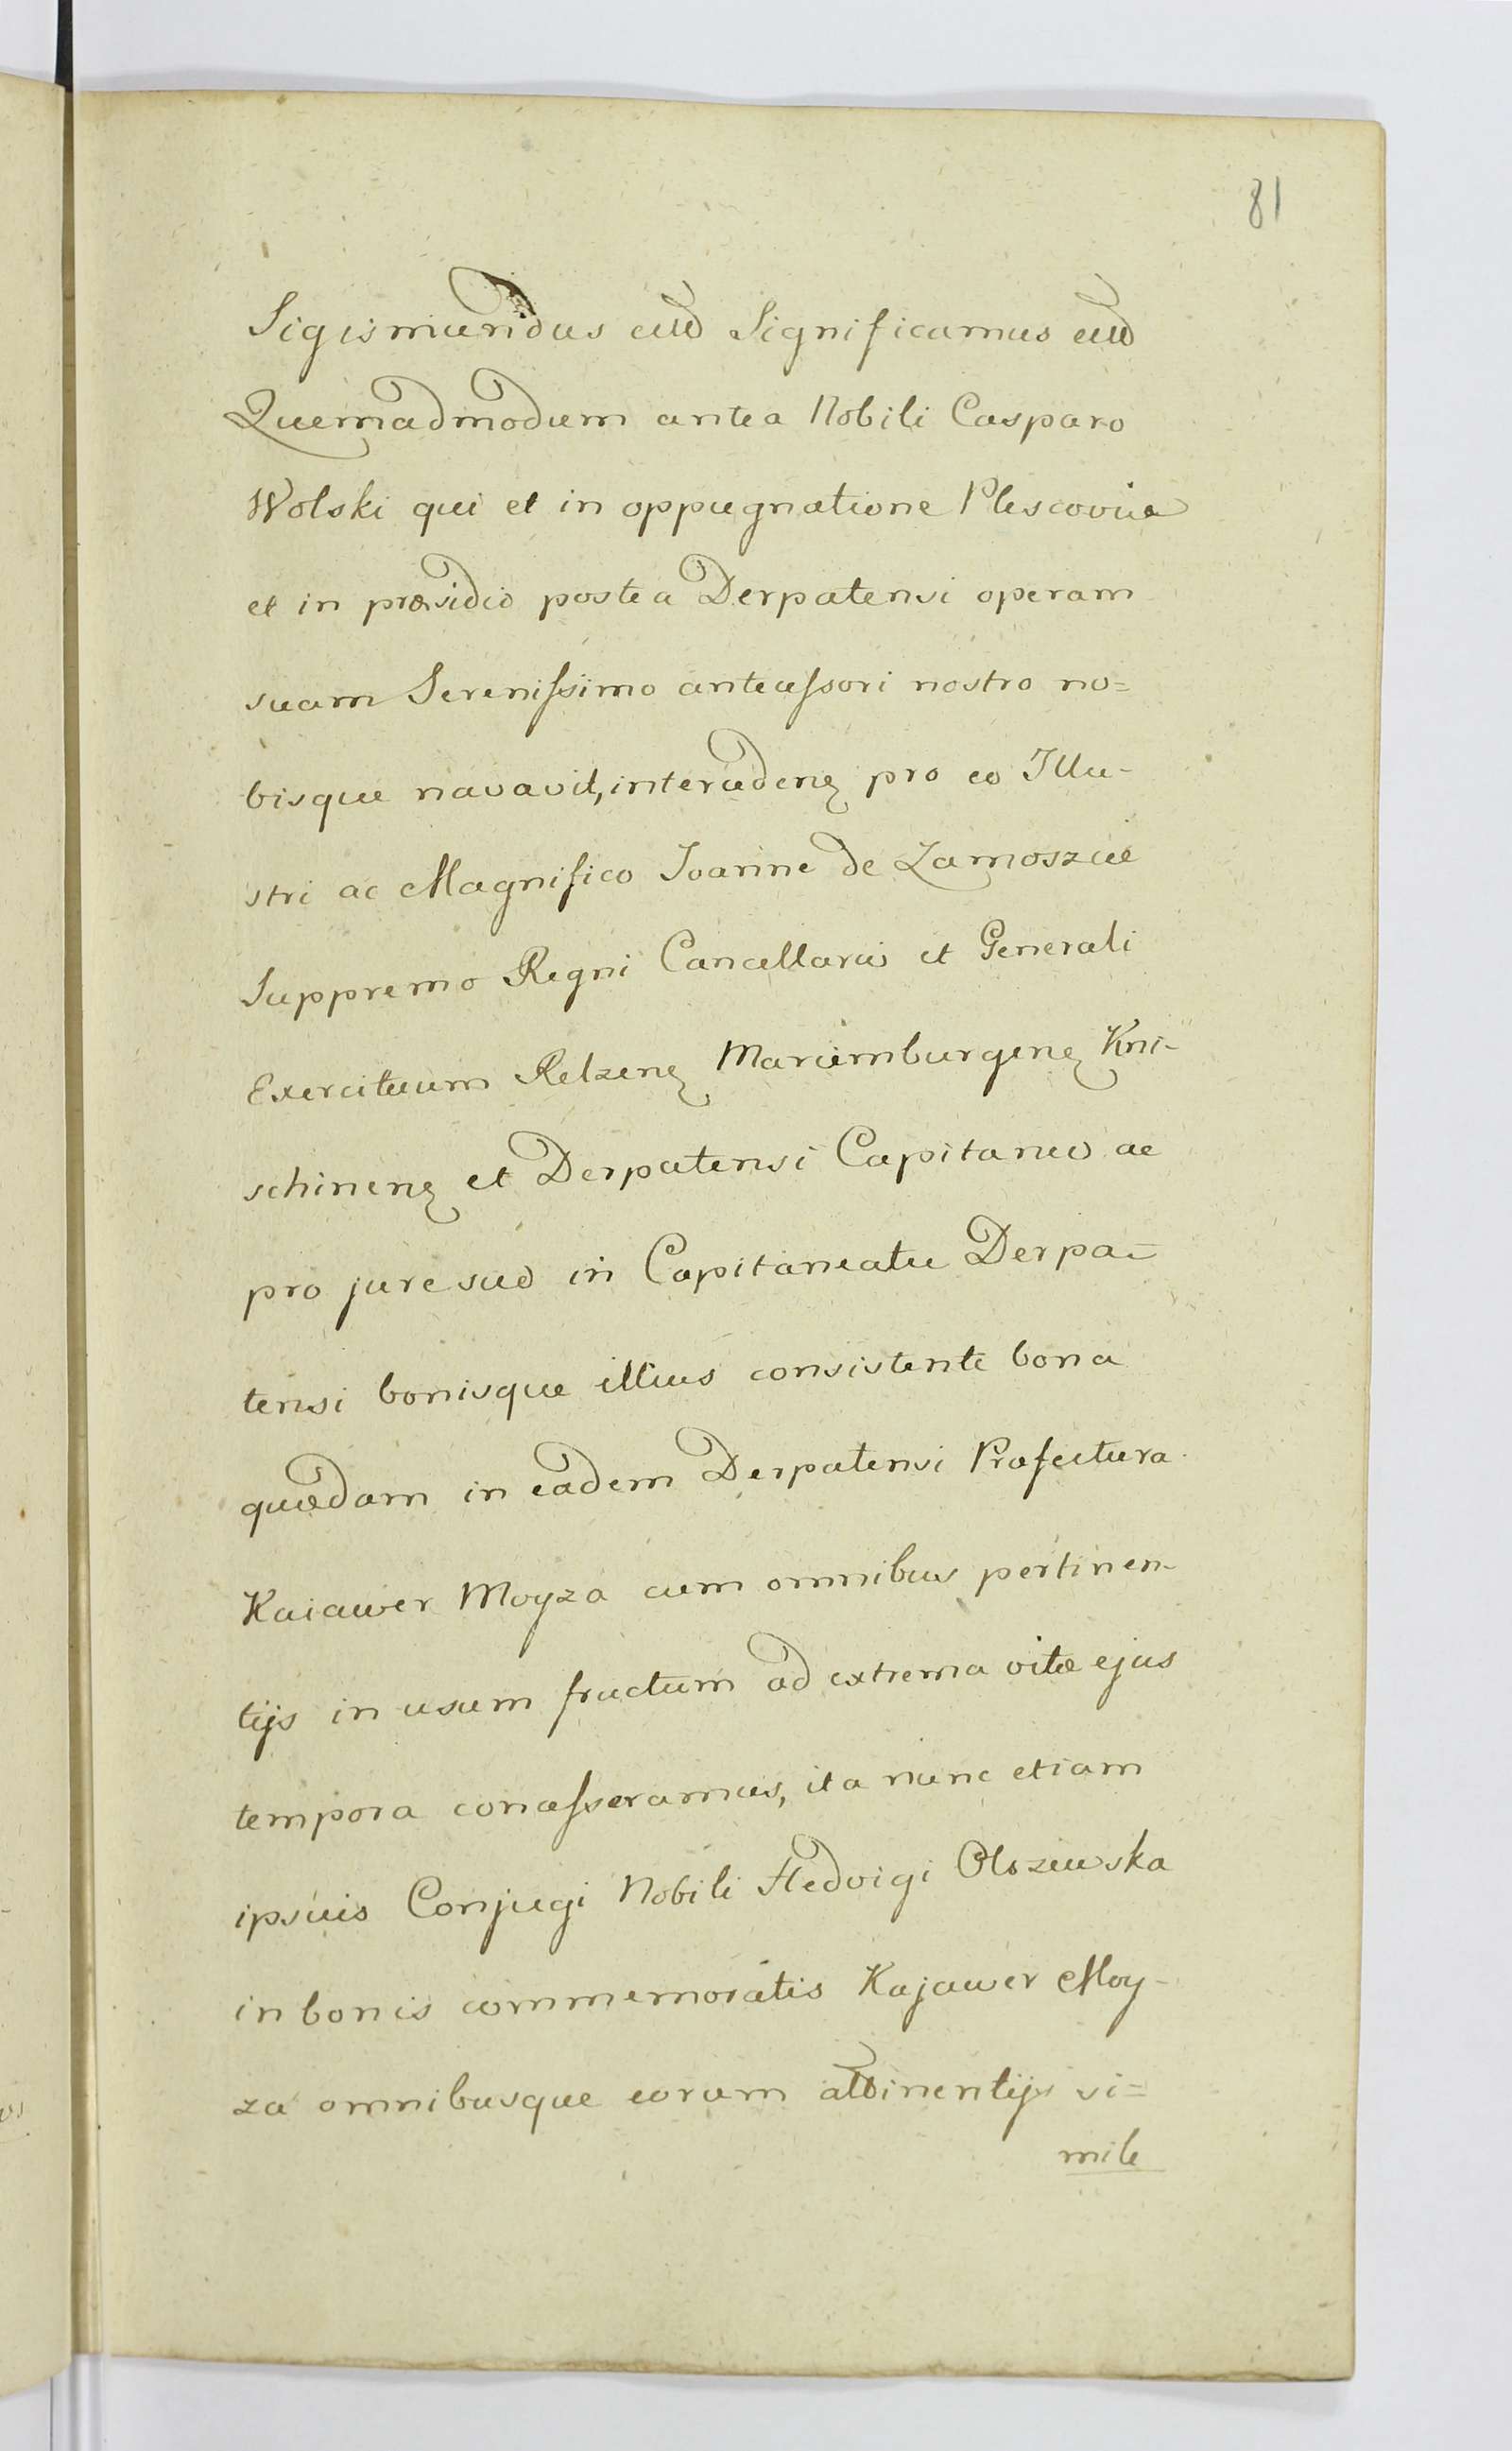 81
Sigismundus etc Significamus etc
Quemadmodum antea Nobili Casparo
Wolski qui et in oppugnatione Plescoviæ
et in præsidio postea Derpatensi operam
suam Serenissimo antecessori nostro no=
bisque navavit, interceden pro eo Illu-
stri ac Magnifico Joanne de Zamoszcie
Suppremo Regni Cancellario et Generali
Exercituum Relzen Mariemburgen Kni-
schinen et Derpatensi Capitaneo ac
pro jure suo in Capitaneatu Derpa=
tensi bonisque illius consistente bona
quædam in eadem Derpatensi Præfectura
Kaiawer Moyza cum omnibus pertinen-
tijs in usum fructum ad extrema vitæ ejus
tempora concesseramus, ita nunc etiam
ipsius Conjugi Nobili Hedvigi Olszewska
in bonis commemoratis Kajawer Moy-
za omnibusque eorum attinentijs si=
mile